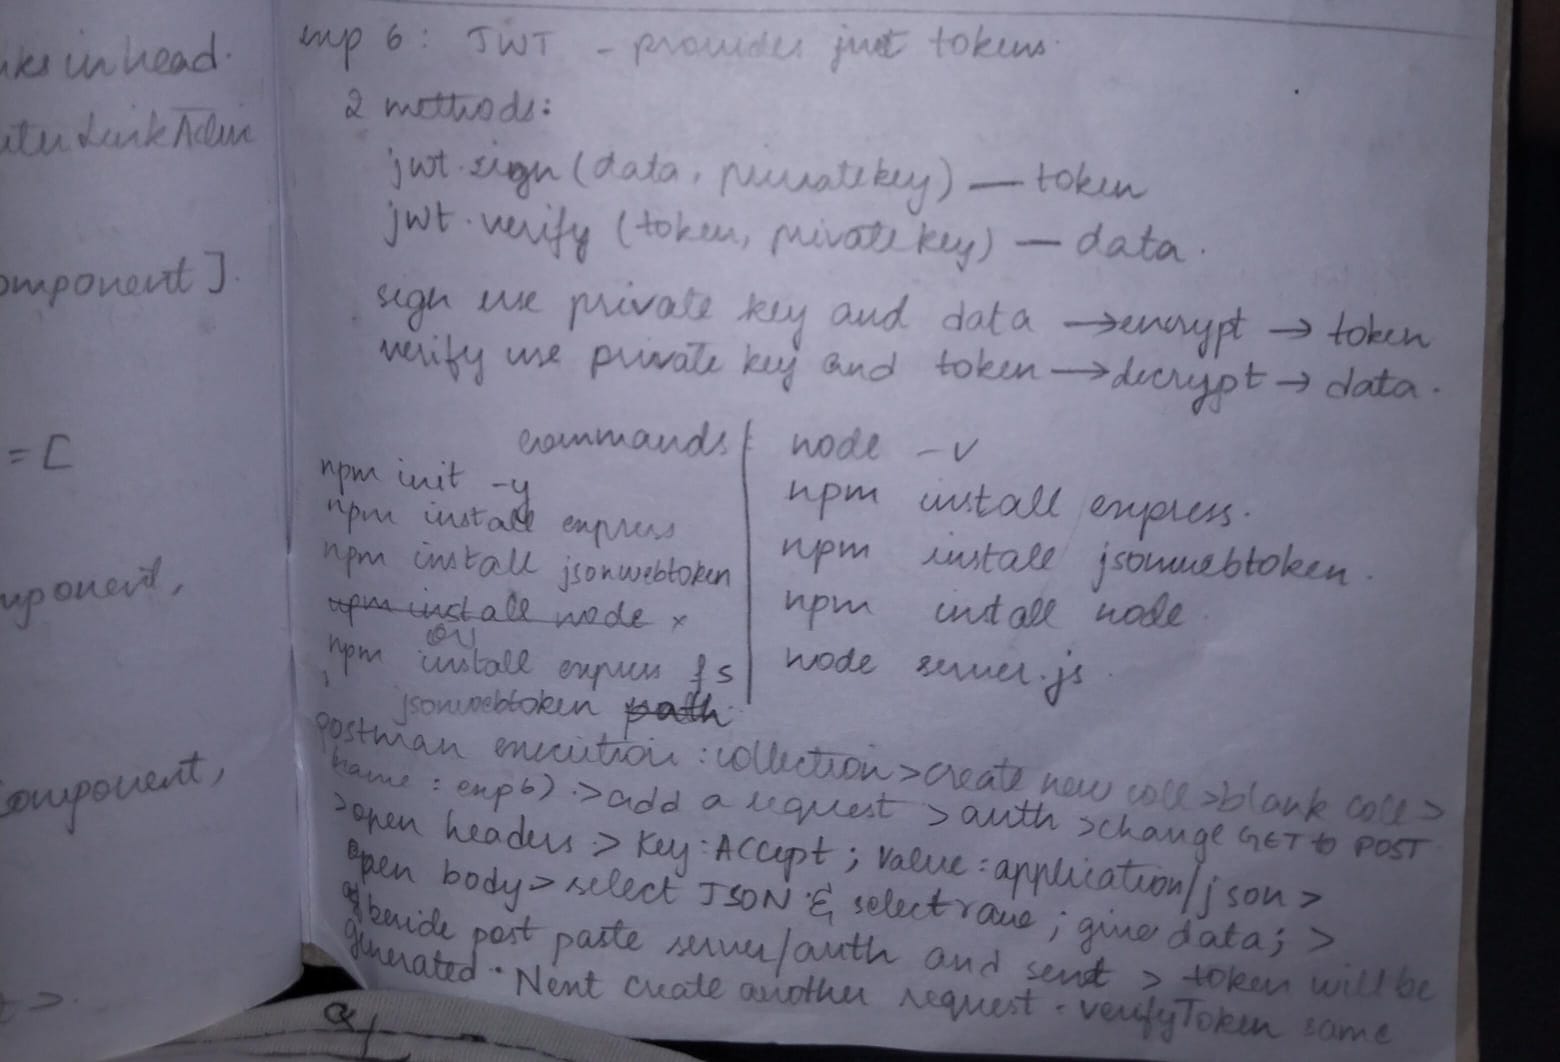 in head.
Link
omponent].
= [
mponent,
component,
exp 6: JWT - provides just tokens.
2 methods:
jwt.sign (data, privatekey) — token
jwt.verify (token, privatekey) — data.
sign use private key and data → encrypt → token
verify use private key and token → decrypt → data.
commands
npm init -y
npm install express
npm install jsonwebtoken
npm install node x
or
npm install express fs
jsonwebtoken path
node -v
npm install express.
npm install jsonwebtoken.
npm install node
node server.js
Postman execution: collection > create new coll > blank coll >
name: exp6) > add a request > auth > change GET to POST
> open headers > Key: Accept; Value: application/json >
open body > select JSON & select raw; give data; >
beside post paste server/auth and send > token will be
generated. Next create another request - verifyToken same